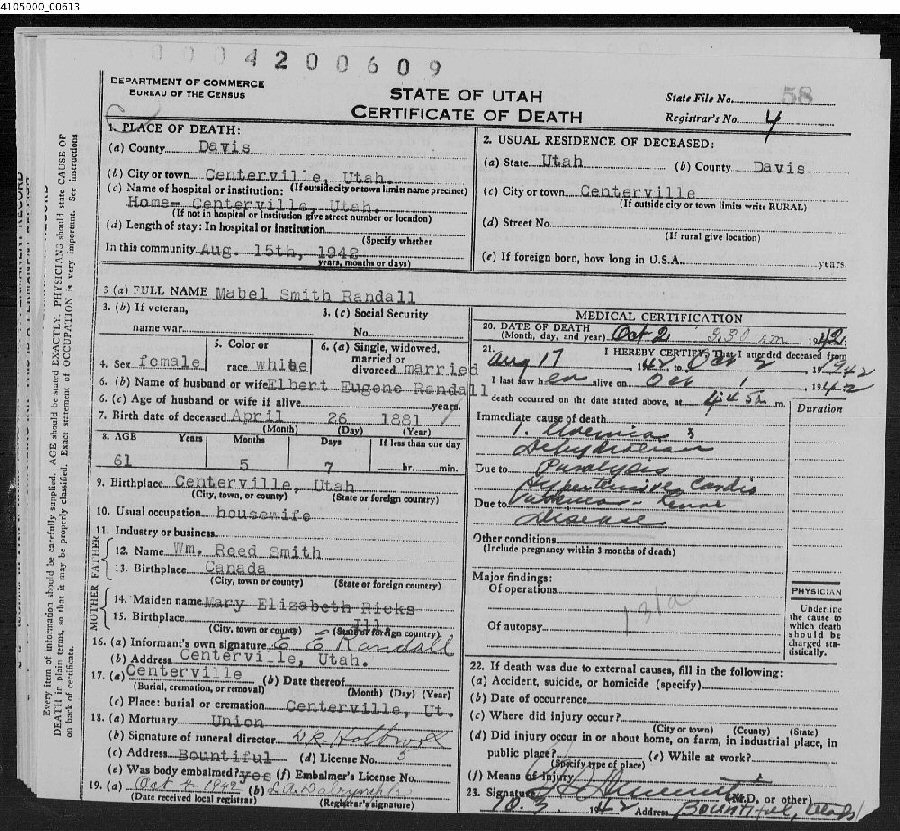 4105000_00613
0004200609
DEPARTMENT OF COMMERCE
BUREAU OF THE CENSUS
STATE OF UTAH
CERTIFICATE OF DEATH
State File No. 58
Registrar's No. 4
1. PLACE OF DEATH:
(a) County Davis
(b) City or town Centerville, Utah.
(c) Name of hospital or institution: (If outside city or town limits name precinct)
Home- Centerville, Utah.
(If not in hospital or institution give street number or location)
(d) Length of stay: In hospital or institution
(Specify whether
In this community Aug. 15th, 1942
years, months or days)
2. USUAL RESIDENCE OF DECEASED:
(a) State Utah (b) County Davis
(c) City or town Centerville
(If outside city or town limits write RURAL)
(d) Street No.
(If rural give location)
(e) If foreign born, how long in U.S.A. years
3 (a) FULL NAME Mabel Smith Randall
3. (b) If veteran,
name war
3. (c) Social Security
No.
4. Sex female
5. Color or
race white
6. (a) Single, widowed,
married or
divorced married
6. (b) Name of husband or wife Elbert Eugene Randall
6. (c) Age of husband or wife if alive years
7. Birth date of deceased April 26 1881
(Month) (Day) (Year)
8. AGE Years Months Days If less than one day
61 5 7 hr. min.
9. Birthplace Centerville, Utah
(City, town, or county) (State or foreign country)
10. Usual occupation housewife
11. Industry or business
FATHER
12. Name Wm. Reed Smith
13. Birthplace Canada
(City, town or county) (State or foreign country)
MOTHER
14. Maiden name Mary Elizabeth Ricks
15. Birthplace Ill.
(City, town or county) (State or foreign country)
16. (a) Informan's own signature E E Randall
(b) Address Centerville, Utah.
17. (a) Centerville (b) Date thereof
(Burial, cremation, or removal) (Month) (Day) (Year)
(c) Place: burial or cremation Centerville, Ut.
18. (a) Mortuary Union
(b) Signature of funeral director
(c) Address Bountiful (d) License No. 3
(e) Was body embalmed? yes (f) Embalmer's License No.
19. (a) Oct 4 1942 (b)
(Date received local registrar) (Registrar's signature)
MEDICAL CERTIFICATION
20. DATE OF DEATH Oct 2 3.30 am 42
(Month, day, and year)
21. I HEREBY CERTIFY, That I attended deceased from
Aug 17 1942 to Oct 2 1942
I last saw her alive on Oct 1 1942
death occurred on the date stated above, at m.
Duration
Immediate cause of death
1. Uremia &
Dehydration
Due to Paralysis
Hypertensive Cardio
Due to Vascular - Renal
Disease
Other conditions
(Include pregnancy within 3 months of death)
Major findings:
Of operations
131a
Of autopsy
PHYSICIAN
Underline
the cause to
which death
should be
charged sta-
tistically.
22. If death was due to external causes, fill in the following:
(a) Accident, suicide, or homicide (specify)
(b) Date of occurrence
(c) Where did injury occur?
(City or town) (County) (State)
(d) Did injury occur in or about home, on farm, in industrial place, in
public place? (e) While at work?
(Specify type of place)
(f) Means of Injury
23. Signature (M.D. or other)
10. 3. 1942 Address Bountiful, Utah
Every item of information should be carefully supplied. AGE should be stated EXACTLY. PHYSICIANS should state CAUSE OF
DEATH in plain terms, so that it may be properly classified. Exact statement of OCCUPATION is very important. See instructions
on back of certificate.